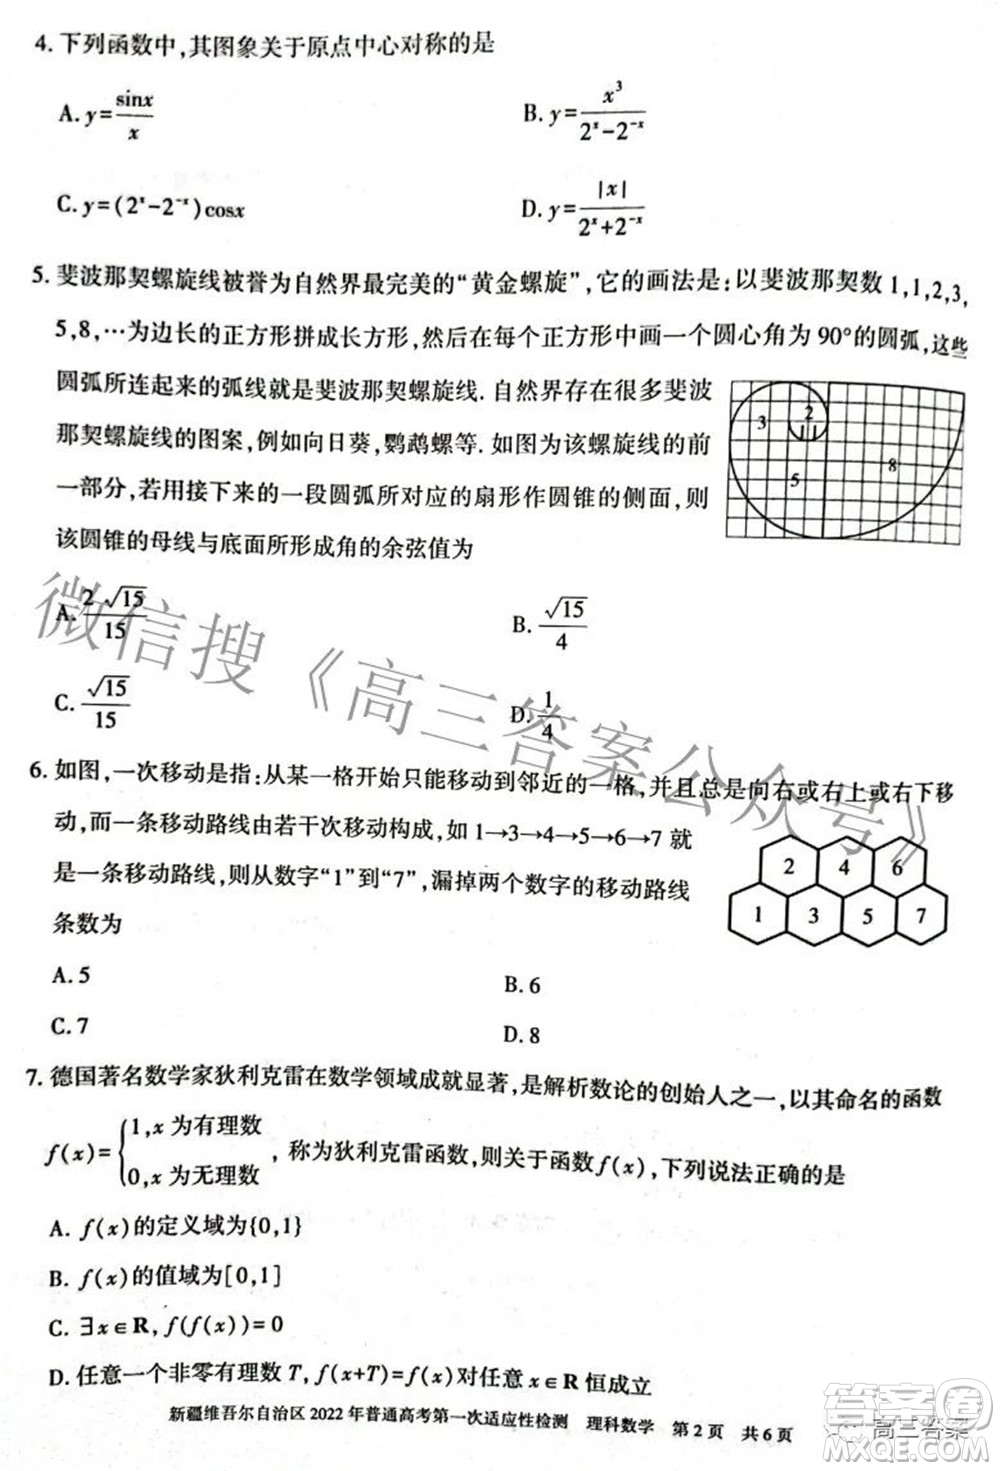 4. 下列函数中,其图象关于原点中心对称的是
A. y=sinx/x
B. y=x³/(2ˣ-2⁻ˣ)
C. y=(2ˣ-2⁻ˣ)cosx
D. y=|x|/(2ˣ+2⁻ˣ)
5. 斐波那契螺旋线被誉为自然界最完美的“黄金螺旋”,它的画法是:以斐波那契数1,1,2,3,
5,8,…为边长的正方形拼成长方形,然后在每个正方形中画一个圆心角为90°的圆弧,这些
圆弧所连起来的弧线就是斐波那契螺旋线. 自然界存在很多斐波
那契螺旋线的图案,例如向日葵,鹦鹉螺等. 如图为该螺旋线的前
一部分,若用接下来的一段圆弧所对应的扇形作圆锥的侧面,则
该圆锥的母线与底面所形成角的余弦值为
3 2
5 8
A. 2√15/15
B. √15/4
C. √15/15
D. 1/4
6. 如图,一次移动是指:从某一格开始只能移动到邻近的一格,并且总是向右或右上或右下移
动,而一条移动路线由若干次移动构成,如1→3→4→5→6→7就
是一条移动路线,则从数字“1”到“7”,漏掉两个数字的移动路线
条数为
2 4 6
1 3 5 7
A. 5
B. 6
C. 7
D. 8
7. 德国著名数学家狄利克雷在数学领域成就显著,是解析数论的创始人之一,以其命名的函数
f(x)={1,x为有理数
0,x为无理数
,称为狄利克雷函数,则关于函数f(x),下列说法正确的是
A. f(x)的定义域为{0,1}
B. f(x)的值域为[0,1]
C. ∃x∈R,f(f(x))=0
D. 任意一个非零有理数T,f(x+T)=f(x)对任意x∈R恒成立
新疆维吾尔自治区2022年普通高考第一次适应性检测 理科数学 第2页 共6页
微信搜《高三答案公众号》
高三答案
答案圈
MXQE.COM